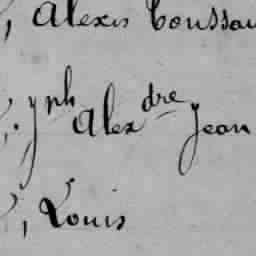 , Alexis Toussai
. Jph Alexdre Jean
, Louis